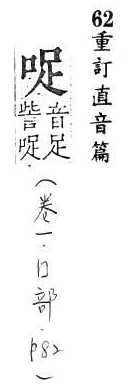 62重訂直音篇
哫
音足
訾哫
（卷一·口部·p82）